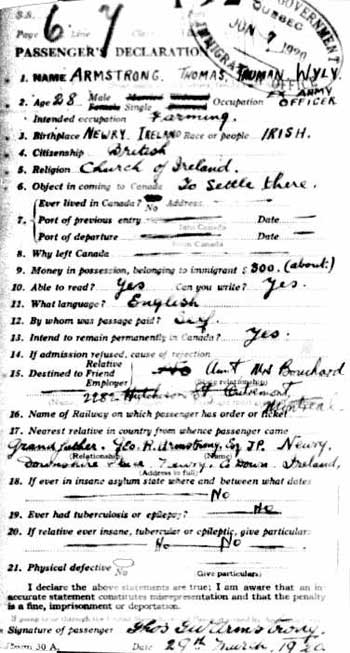 S.S.
Page 6 7
PASSENGER'S DECLARATION
GOVERNMENT
QUEBEC
JUN 7 1920
IMMIGRATION
OFFICE
1. NAME ARMSTRONG. THOMAS, TRUMAN, WYLY.
2. Age 28 Male Single Occupation EX ARMY OFFICER
Intended occupation Farming.
3. Birthplace NEWRY, IRELAND Race or people IRISH.
4. Citizenship British
5. Religion Church of Ireland.
6. Object in coming to Canada To Settle there.
7. Ever lived in Canada? No Address
Port of previous entry Date
Port of departure Date
From Canada
8. Why left Canada
9. Money in possession, belonging to immigrant $ 300. (about)
10. Able to read? Yes Can you write? Yes.
11. What language? English
12. By whom was passage paid? Self
13. Intend to remain permanently in Canada? Yes.
14. If admission refused, cause of rejection
15. Destined to Relative Friend Employer Aunt Mrs Bouchard
Hutchison St Outremont, Montreal
16. Name of Railway on which passenger has order or ticket
17. Nearest relative in country from whence passenger came
Grandfather. Geo. R. Armstrong, Esq JP. Newry.
(Relationship) (Name)
Downshire Newry, Co Down. Ireland,
(Address in full)
18. If ever in insane asylum state where and between what dates
No
19. Ever had tuberculosis or epilepsy? No
20. If relative ever insane, tubercular or epileptic, give particulars
No No
21. Physical defective No Give particulars:
I declare the above statements are true; I am aware that an
accurate statement constitutes misrepresentation and that the penalty
is a fine, imprisonment or deportation.
Signature of passenger Thos TW Armstrong.
Form 30 A. Date 29th March, 1920